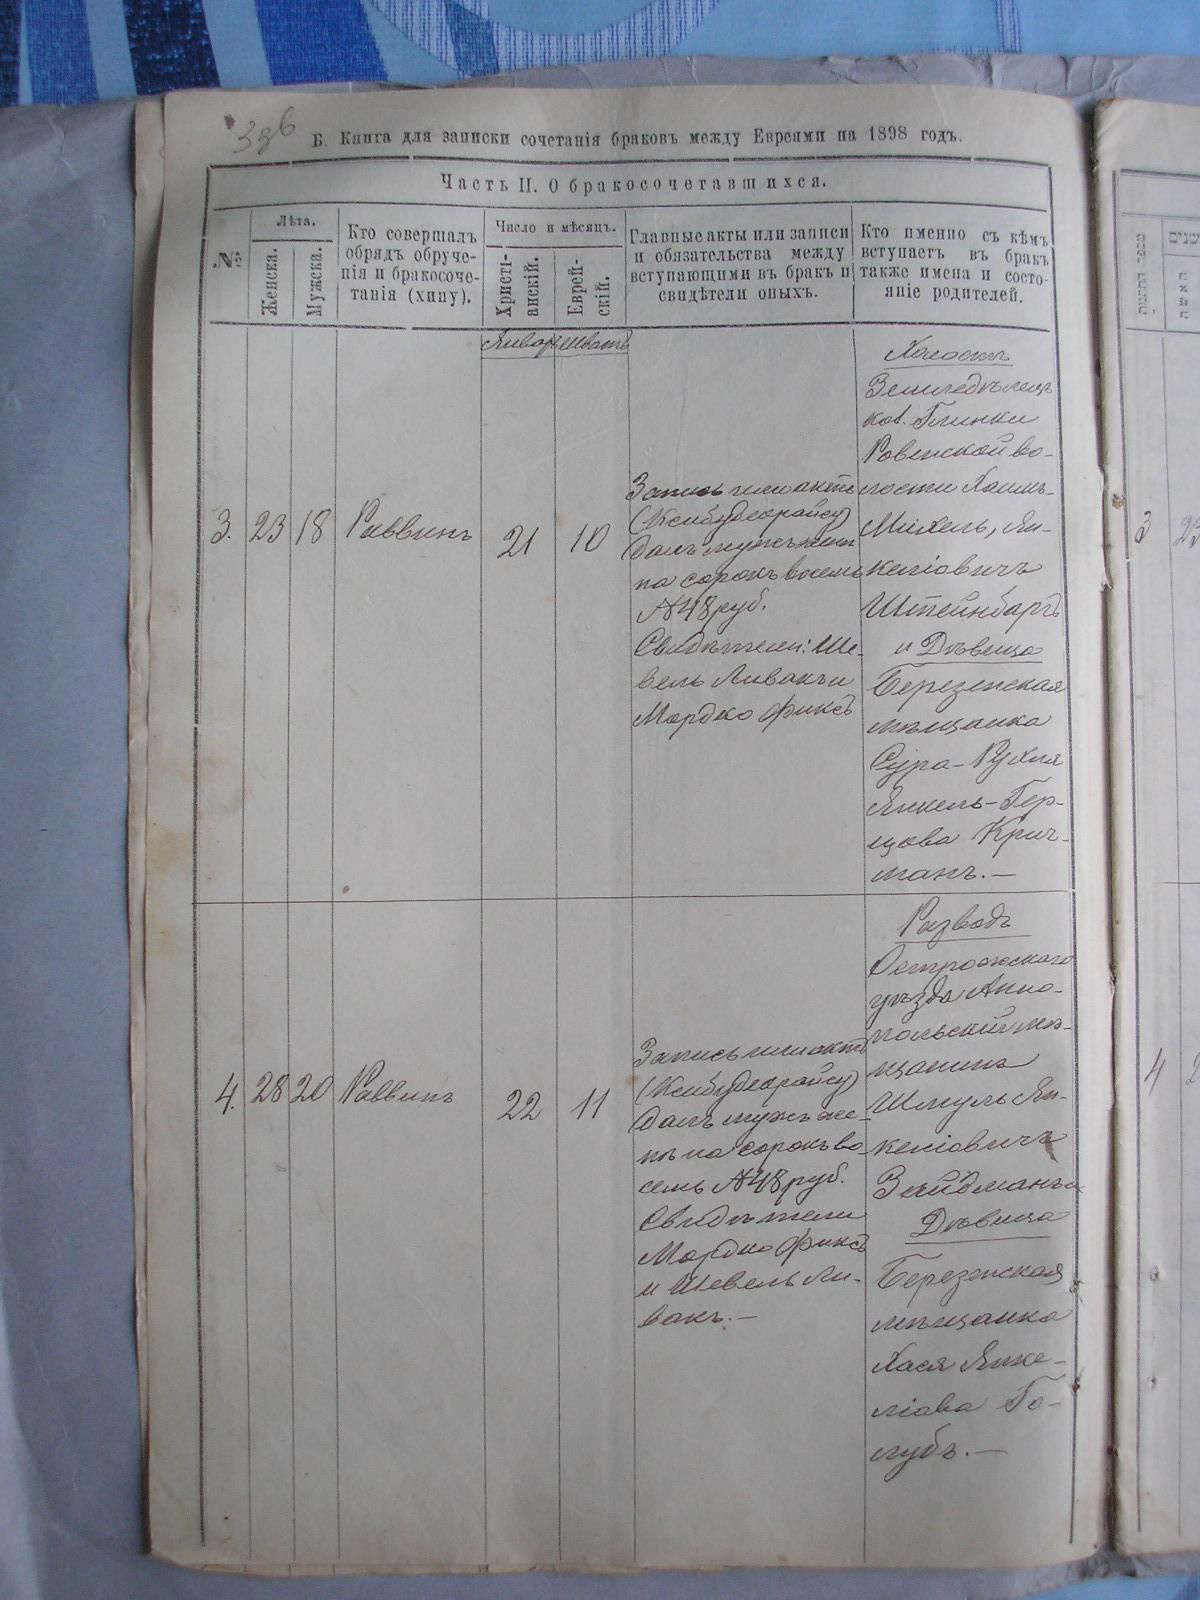 Б. Книга для записки сочетанія браковъ между Евреями на 1898 годъ.
Часть II. О бракосочетавшихся.
№
Лѣта.
Женска.
Мужска.
Кто совершалъ
обрядъ обруче-
нія и бракосоче-
танія (хипу).
Число и мѣсяцъ.
Христі-
анскій.
Еврей-
скій.
Главные акты или записи
и обязательства между
вступающими въ бракъ и
свидѣтели оныхъ.
Кто именно съ кѣмъ
вступаетъ въ бракъ
также имена и состо-
яніе родителей.
Январь
Шватъ
3.
23
18
Раввинъ
21
10
Запись или актъ
далъ мужъ женѣ
на сорокъ восемь
№48 руб.
Свидѣтели: Ше-
вель Ливакъ и
Мордко Фиксъ
Холостъ
Земледѣлецъ
кол. Глинки
Ровенской во-
лости Хаимъ-
Михель, Ян-
келіовичъ
Штейнбаргъ
и Дѣвица
Березенская
мѣщанка
Сура-Рухля
Янкель-Гер-
цова Крич-
манъ.—
4.
28
20
Раввинъ
22
11
Запись или актъ
далъ мужъ же-
нѣ на сорокъ во-
семь №48 руб.
Свидѣтели
Мордко Фиксъ
и Шевель Ли-
вакъ.—
Разводъ
Острожскаго
уѣзда Анно-
польскій мѣ-
щанинъ
Шмуль Ян-
келіовичъ
Зайдманъ и
Дѣвица
Березенская
мѣщанка
Хася Янке-
ліова Го-
лубъ.—
3
4